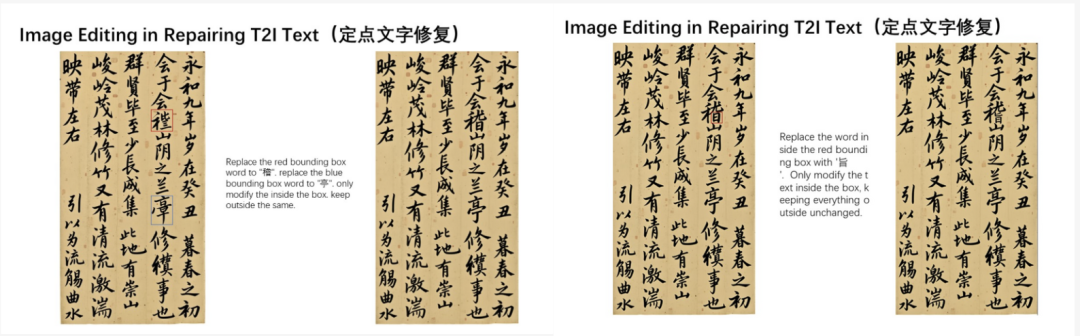 Image Editing in Repairing T2I Text（定点文字修复）
永和九年岁在癸丑 暮春之初
会于会山阴之兰修事也
群贤毕至少長咸集 此地有崇山
峻岭茂林修竹又有清流激湍
映带左右 引以为流觞曲水
Replace the red bounding box
word to "稽". replace the blue
bounding box word to "亭". only
modify the inside the box. keep
outside the same.
永和九年岁在癸丑 暮春之初
会于会稽山阴之兰亭修事也
群贤毕至少長咸集 此地有崇山
峻岭茂林修竹又有清流激湍
映带左右 引以为流觞曲水
Image Editing in Repairing T2I Text（定点文字修复）
永和九年岁在癸丑 暮春之初
会于会山阴之兰亭修事也
群贤毕至少長咸集 此地有崇山
峻岭茂林修竹又有清流激湍
映带左右 引以为流觞曲水
Replace the word in
side the red boundi
ng box with '旨
'. Only modify the t
ext inside the box, k
eeping everything o
utside unchanged.
永和九年岁在癸丑 暮春之初
会于会稽山阴之兰亭修事也
群贤毕至少長咸集 此地有崇山
峻岭茂林修竹又有清流激湍
映带左右 引以为流觞曲水